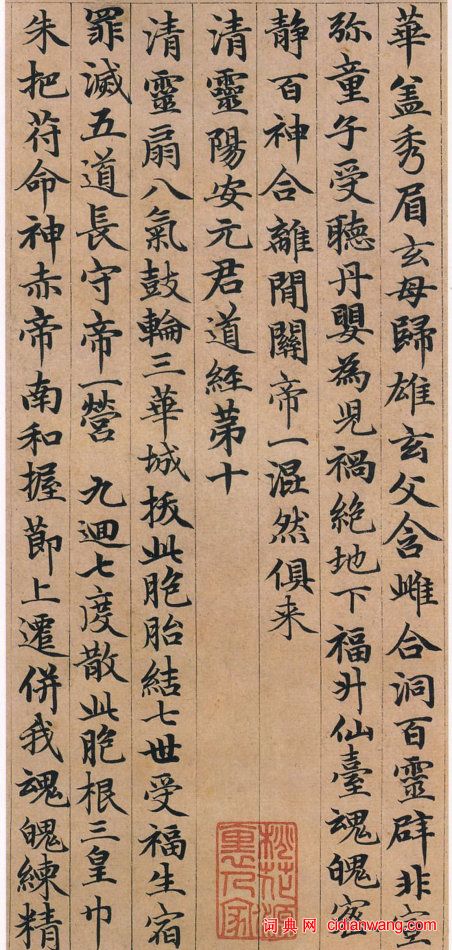 華盖秀眉玄母歸雄玄父含雌合洞百靈辟非
弥童子受聽丹嬰為児禍絶地下福升仙臺魂魄
静百神合離閒關帝一混然俱来
清靈陽安元君道經第十
清靈扇八氣鼓輪三華城拔此胞胎結七世受福生宿
罪滅五道長守帝一營 九迴七度散此胞根三皇巾
朱把苻命神赤帝南和握節上遷併我魂魄練精
桃花源裏人家
词典网 cidianwang.com